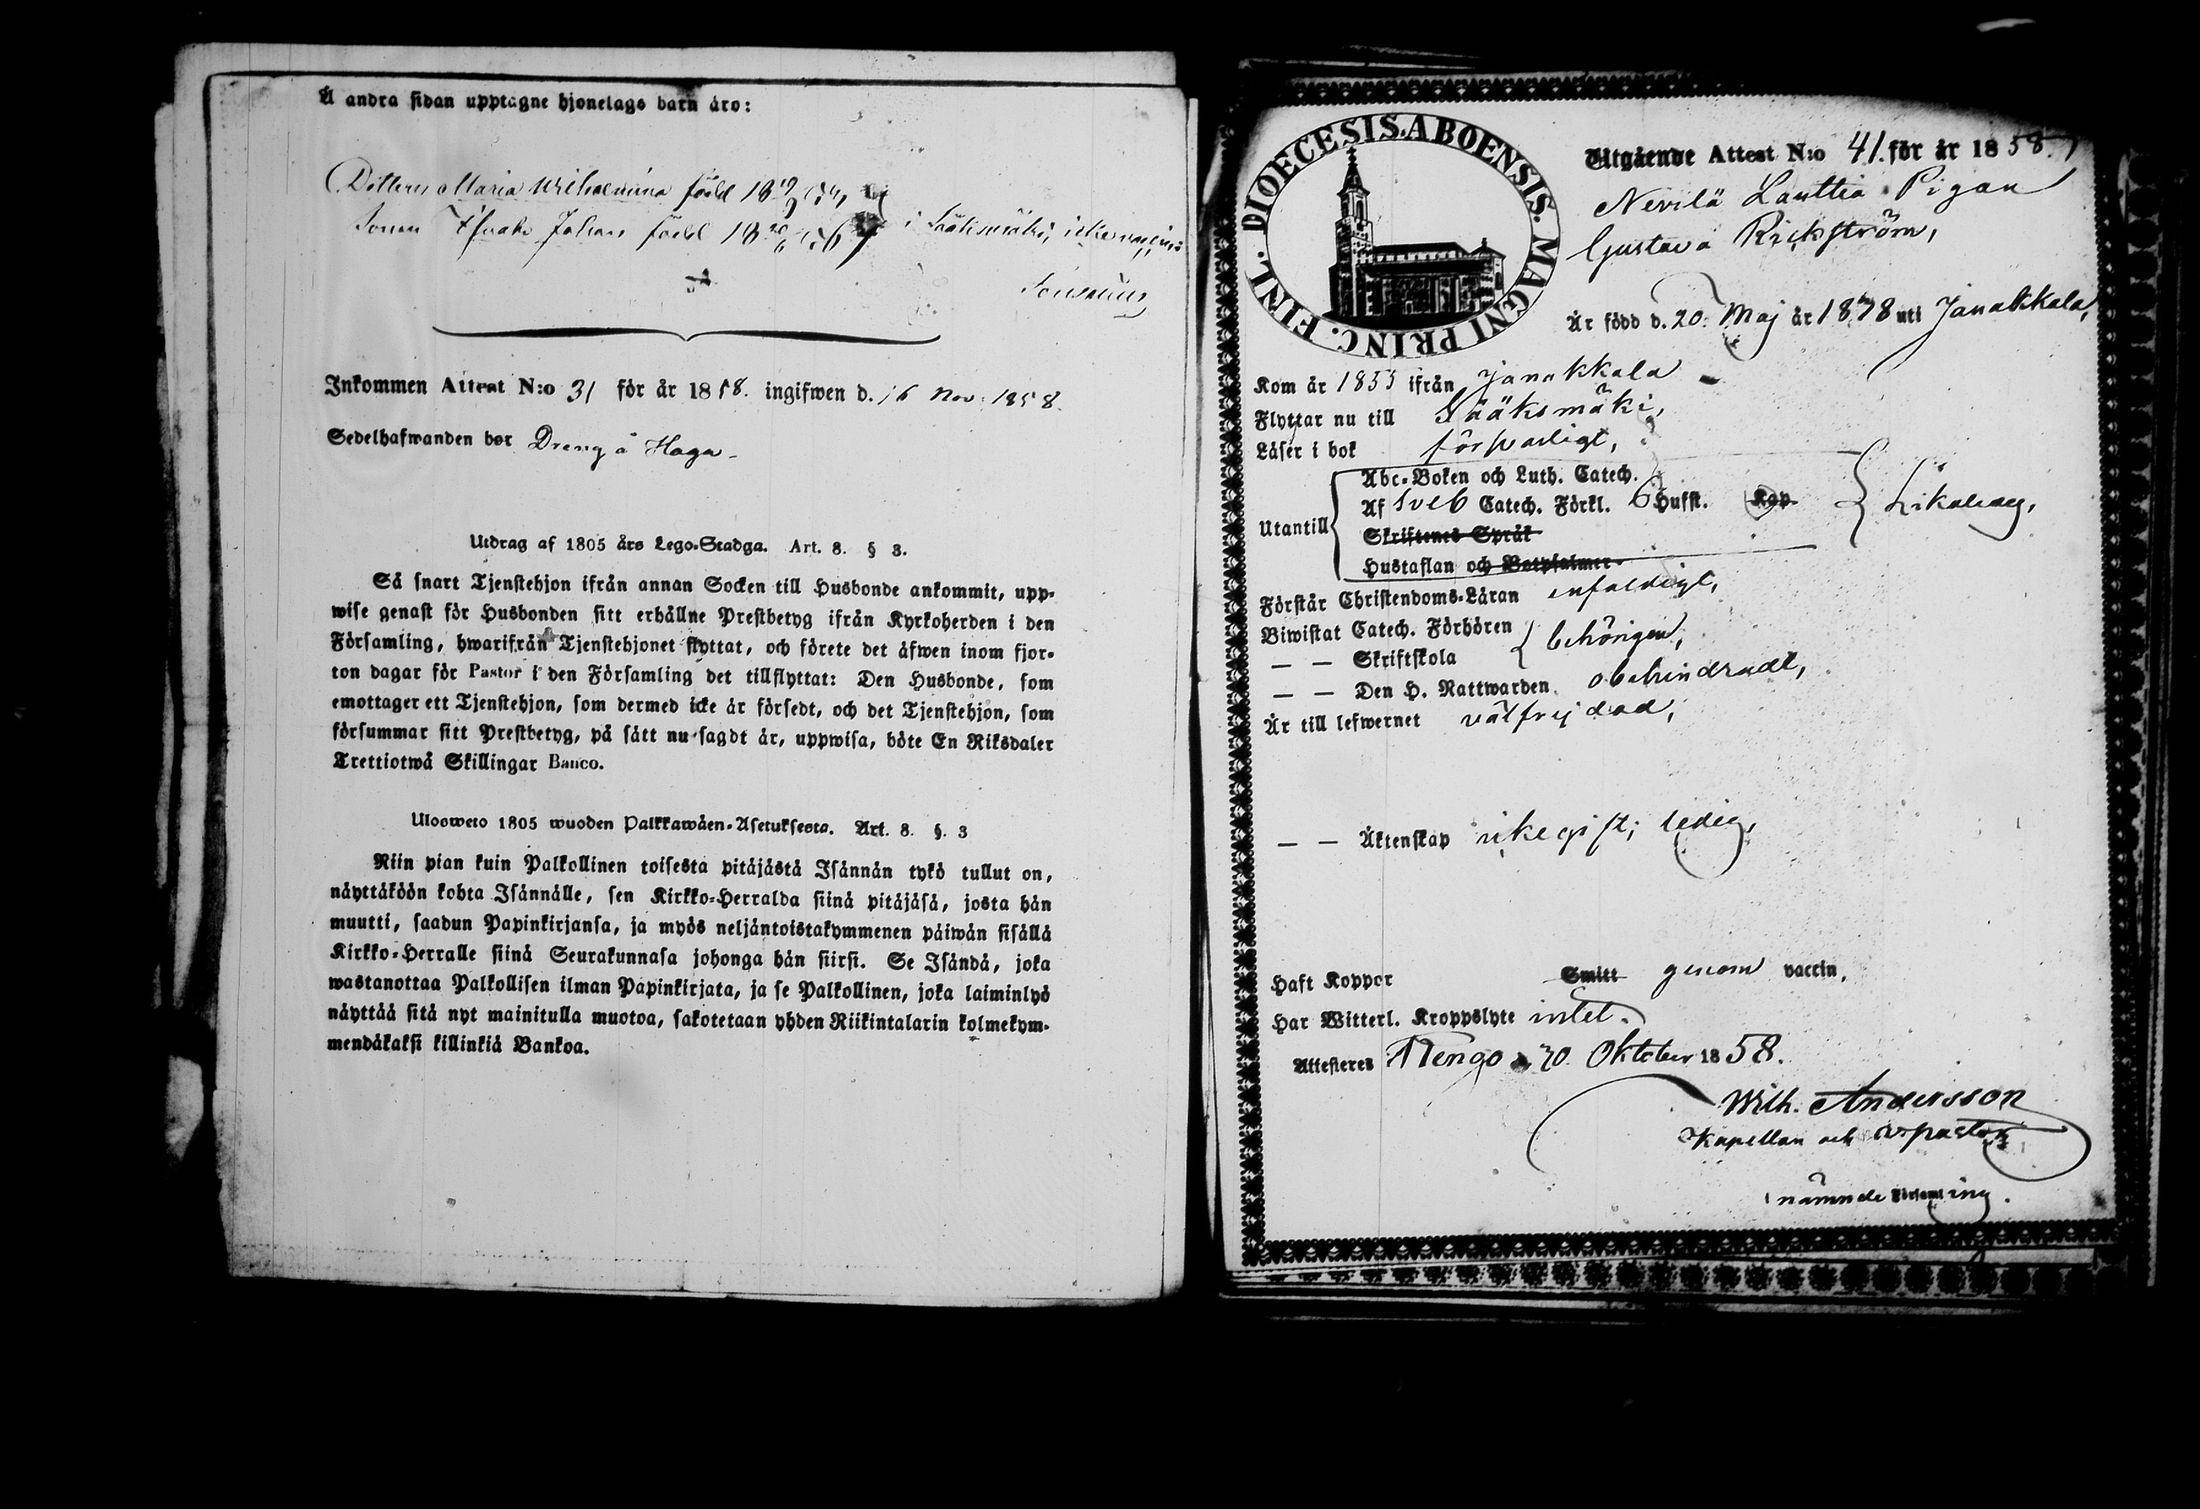 Å andra sidan upptagne hjonelags barn äro:
Dottern Maria Wilhelmina född 18
Sonen Isaak Johan född 18 i Sääksmäki, icke
Inkommen Attest N:o 31 för år 1858. ingifwen d. 16 Nov. 1858.
Sedelhafwanden bor Dreng å Haga
Utdrag af 1805 års Lego-Stadga. Art. 8. § 3.
Så snart Tjenstehjon ifrån annan Socken till Husbonde ankommit, upp-
wise genast för Husbonden sitt erhållne Prestbetyg ifrån Kyrkoherden i den
Församling, hwarifrån Tjenstehjonet flyttat, och förete det äfwen inom fjor-
ton dagar för Pastor i den Församling det tillflyttat: Den Husbonde, som
emottager ett Tjenstehjon, som dermed icke är försedt, och det Tjenstehjon, som
försummar sitt Prestbetyg, på sätt nu sagdt är, uppwisa, böte En Riksdaler
Trettiotwå Skillingar Banco.
Ulosweto 1805 wuoden Palkkawäen-Asetuksesta. Art. 8. §. 3
Niin pian kuin Palkollinen toisesta pitäjästä Isännän tykö tullut on,
näyttäköön kohta Isännälle, sen Kirkko-Herralda siinä pitäjäsä, josta hän
muutti, saadun Papinkirjansa, ja myös neljäntoistakymmenen päiwän sisällä
Kirkko-Herralle siinä Seurakunnasa johonga hän siirsi. Se Isändä, joka
wastanottaa Palkollisen ilman Papinkirjata, ja se Palkollinen, joka laiminlyö
näyttää sitä nyt mainitulla muotoa, sakotetaan yhden Riikintalarin kolmekym-
mendäkaksi killinkiä Bankoa.
DIOECESIS. ABOENSIS. MAGNI PRINC. FINL.
Utgående Attest N:o 41. för år 1858.
Nevilä Lauttia Pigan
Gustava Rickström,
Är född d. 20. Maj år 1838 uti Janakkala,
Kom år 1855 ifrån Janakkala
Flyttar nu till Sääksmäki,
Läser i bok försvarligt,
Utantill
Abc-Boken och Luth. Catech.
Af Sveb Catech. Förkl. 6 Hufst. Kap
Skriftenes Språk
Hustaflan och Botpsalmer
Likaledes,
Förstår Christendoms-Läran enfaldigt,
Biwistat Catech. Förhören
— — Skriftskola
behörigen,
— — Den H. Nattwarden obehindradt,
Är till lefwernet välfrejdad,
— — Äktenskap icke gift; ledig,
Haft Koppor Smitt genom vaccin,
Har Witterl. Kroppslyte intet.
Attesteres Rengo d. 30 Oktober 1858.
Wilh. Andersson
Kapellan och v. pastor
i nämnde Församling.